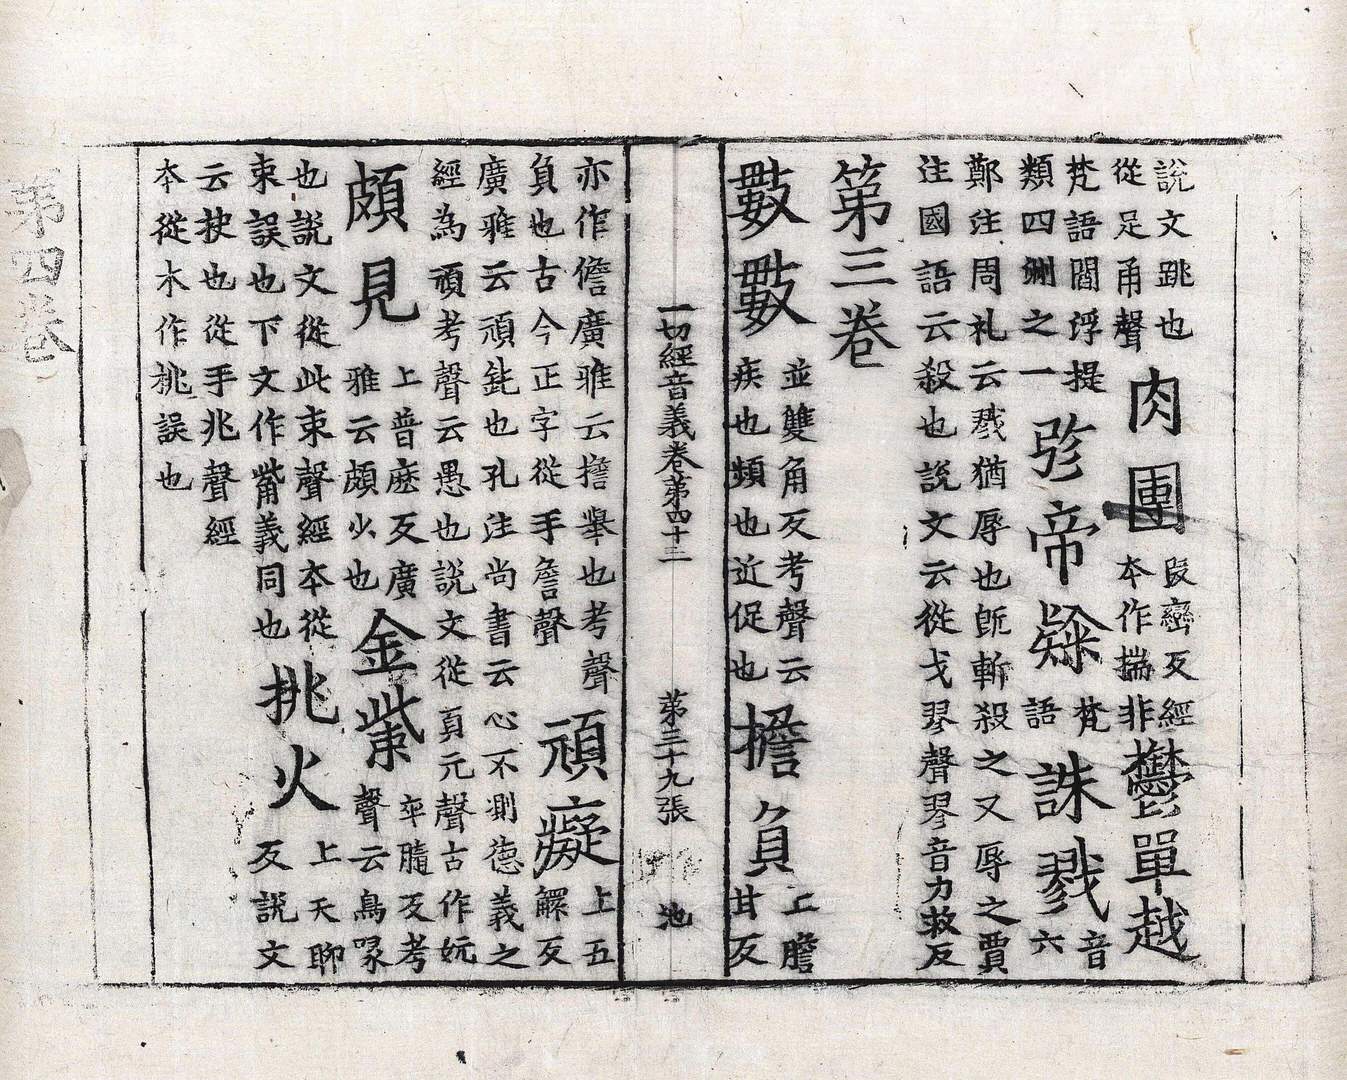 說文跳也
從足甬聲
肉團
段巒反經
本作揣非
鬱單越
梵語閻浮提
類四洲之一
帝
梵
語
誅戮
音
六
鄭注周礼云戮猶辱也既斬殺之又辱之賈
注國語云殺也說文云從戈翏聲翏音力救反
第三卷
數數
並雙角反考聲云
疾也頻也近促也
擔負
上膽
甘反
一切經音義卷第四十三 第三十九張 池
亦作儋廣雅云擔舉也考聲
負也古今正字從手詹聲
頑癡
上五
鰥反
廣雅云頑鈍也孔注尚書云心不測德義之
經為頑考聲云愚也說文從頁元聲古作妧
頗見
上普麼反廣
雅云頗少也
金觜
卒髓反考
聲云鳥喙
也說文從此朿聲經本從
束誤也下文作觜義同也
挑火
上天聊
反說文
云抉也從手兆聲經
本從木作桃誤也
第四卷